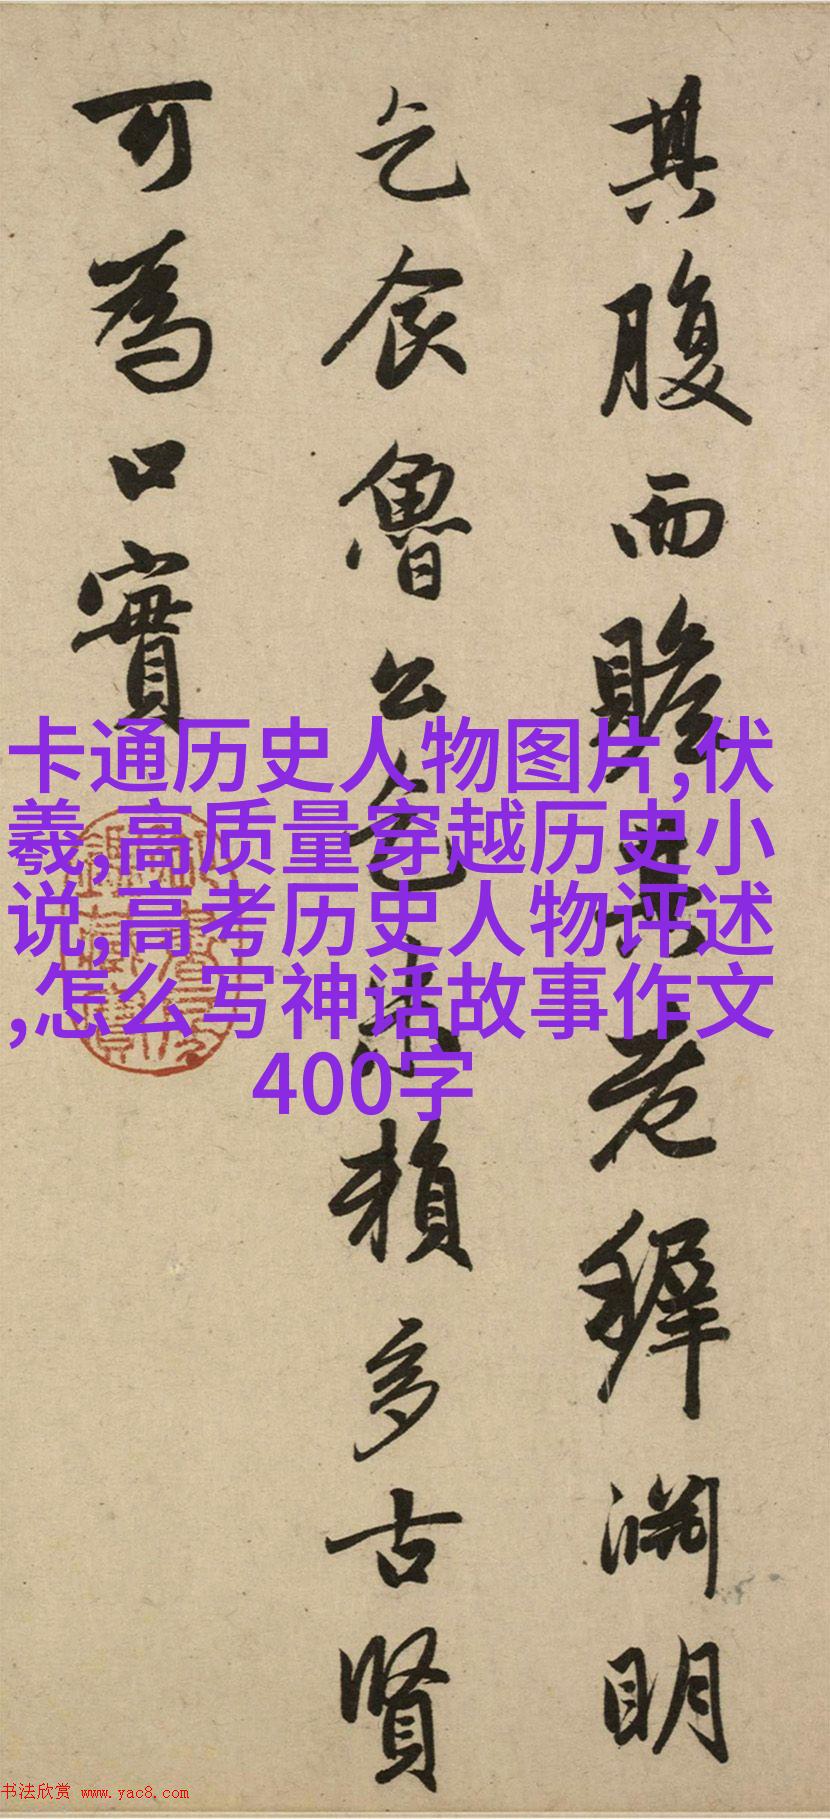 其腹而贍其老穉淵明
乞食魯公乞米賴多古賢
可為口實
卡通历史人物图片,伏
羲,高质量穿越历史小
说,高考历史人物评述
,怎么写神话故事作文
400字
书法欣赏 www.yac8.com